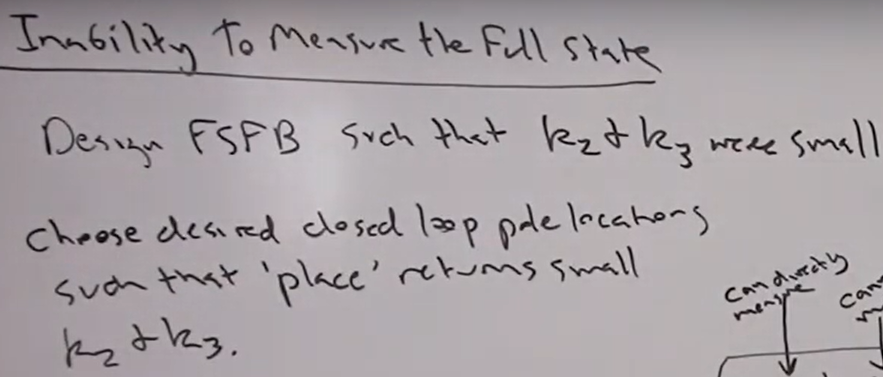 Inability To Measure the Full State
Design FSFB such that k₂ & k₃ were small
choose desired closed loop pole locations
such that 'place' returns small
k₂ & k₃.
can directly
measure